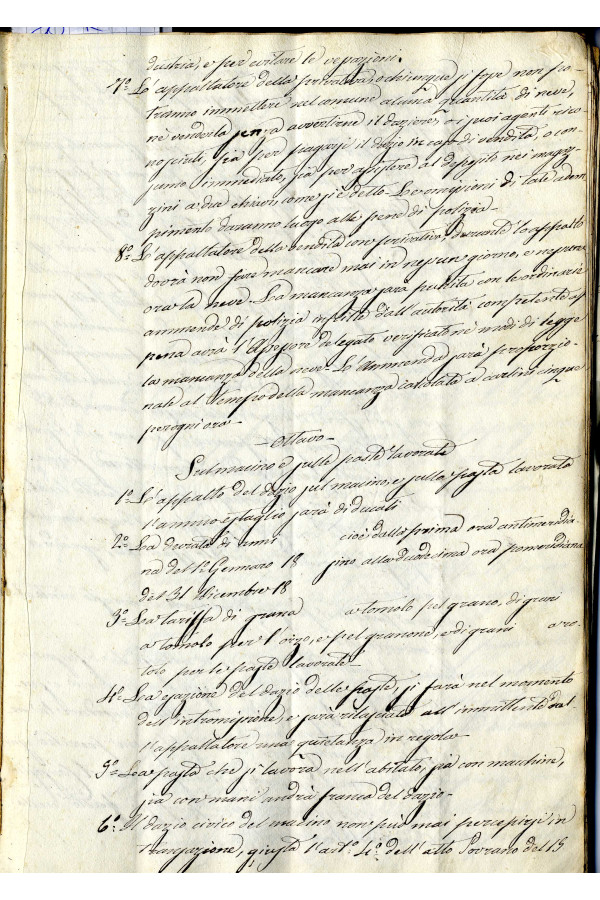 dustria, e per evitare le vessazioni.
7º L'appaltatore della privativa, o chiunque si fosse non po-
tranno immettere nel comune alcuna quantità di neve,
nè venderla senza avvertirne il daziere, o i suoi agenti rico-
nosciuti, sia per pagarsi il dazio in caso di vendita, o con-
sumo immediato, sia per assistere al deposito nei magaz-
zini a due chiavi come si è detto. Le omissioni di tale adem-
pimento daranno luogo alle pene di polizia.
8º L'appaltatore della vendita con privativa, durante lo appalto
dovrà non fare mancare mai in nessun giorno, e nessun'
ora la neve. La mancanza sarà punita con le ordinarie
ammende di polizia inflitte dall'autorità competente ap-
pena avrà l'Assessore delegato verificato ne' modi di legge
la mancanza della neve. L'Ammenda sarà proporzio-
nale al tempo della mancanza calcolata a carlini cinque
per ogni ora.
Ottavo
Sul macino e sulle paste lavorate
1º L'appalto del dazio sul macino, e sulla pasta lavorata
l'ammontestaglio sarà di ducati
2º La durata di anni cioè dalla prima ora antimeridia-
na del 1º Gennaro 18 sino alla duodecima ora pomeridiana
del 31 Dicembre 18
3º La tariffa di grana a tomolo pel grano, di grani
a tomolo per l'orzo, e pel granone, e di grani a ro-
tolo per le paste lavorate
4º La esazione del dazio delle paste si farà nel momento
dell'intromissione, e sarà rilasciata all'immittente dal-
l'appaltatore una quietanza in regola
5º La pasta che si lavora nell'abitato, sia con macchine,
sia con mani andrà franca del dazio.
6º Il dazio civico del macino non può mai percepirsi in
transazione, giusta l'art.º 4º dell'atto Sovrano del 15